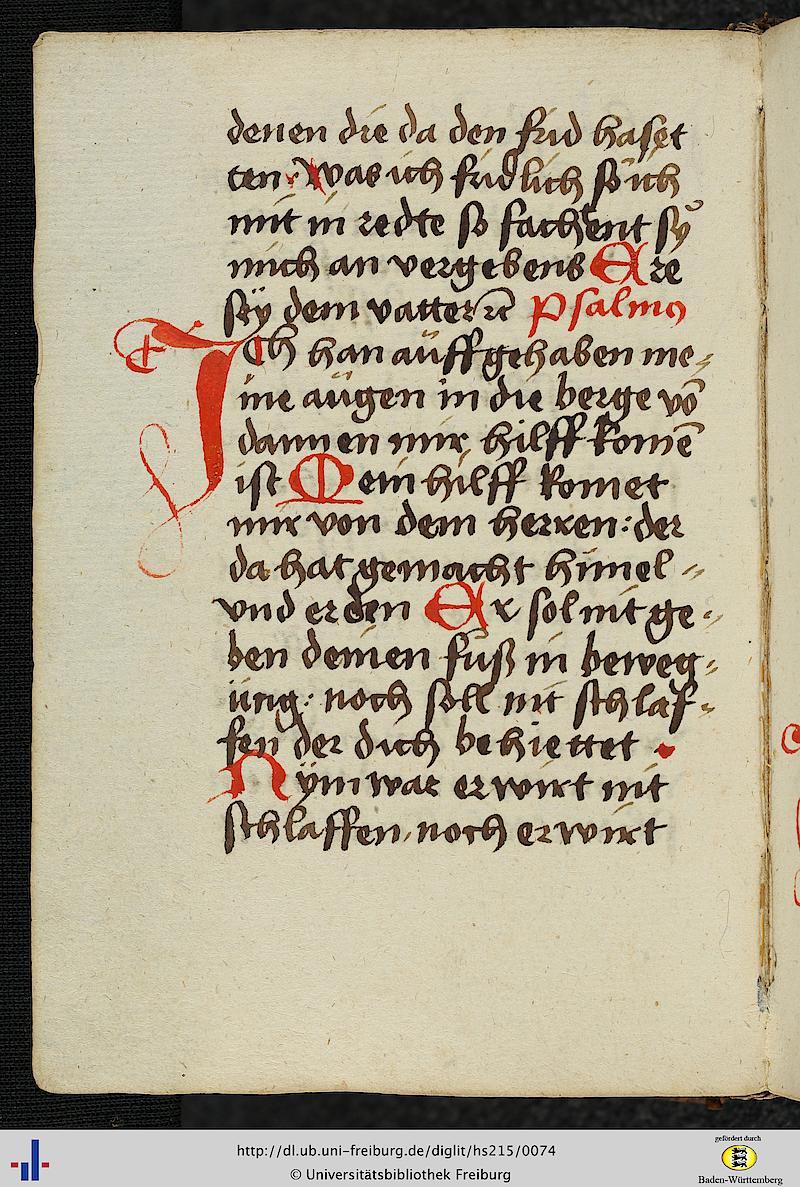 denen die da den frid haset
ten. Was ich fridlich so ich
mit in redte so fachent sÿ
mich an vergebens Ere
sey dem vatter rc̄ Psalmus
Ich han aŭffgehaben me-
ine aŭgen in die berge vō
dannen mir hilff komē
ist Mein hilff komet
mir von dem herren: der
da hat gemacht himel
vnd erden Er sol nit ge-
ben deinen fŭß in beweg-
ŭng: noch soll nit schlaf-
fen der dich behiettet.
Nÿm war er wirt nit
schlaffen, noch er wirt
http://dl.ub.uni-freiburg.de/diglit/hs215/0074
© Universitätsbibliothek Freiburg
gefördert durch
Baden-Württemberg